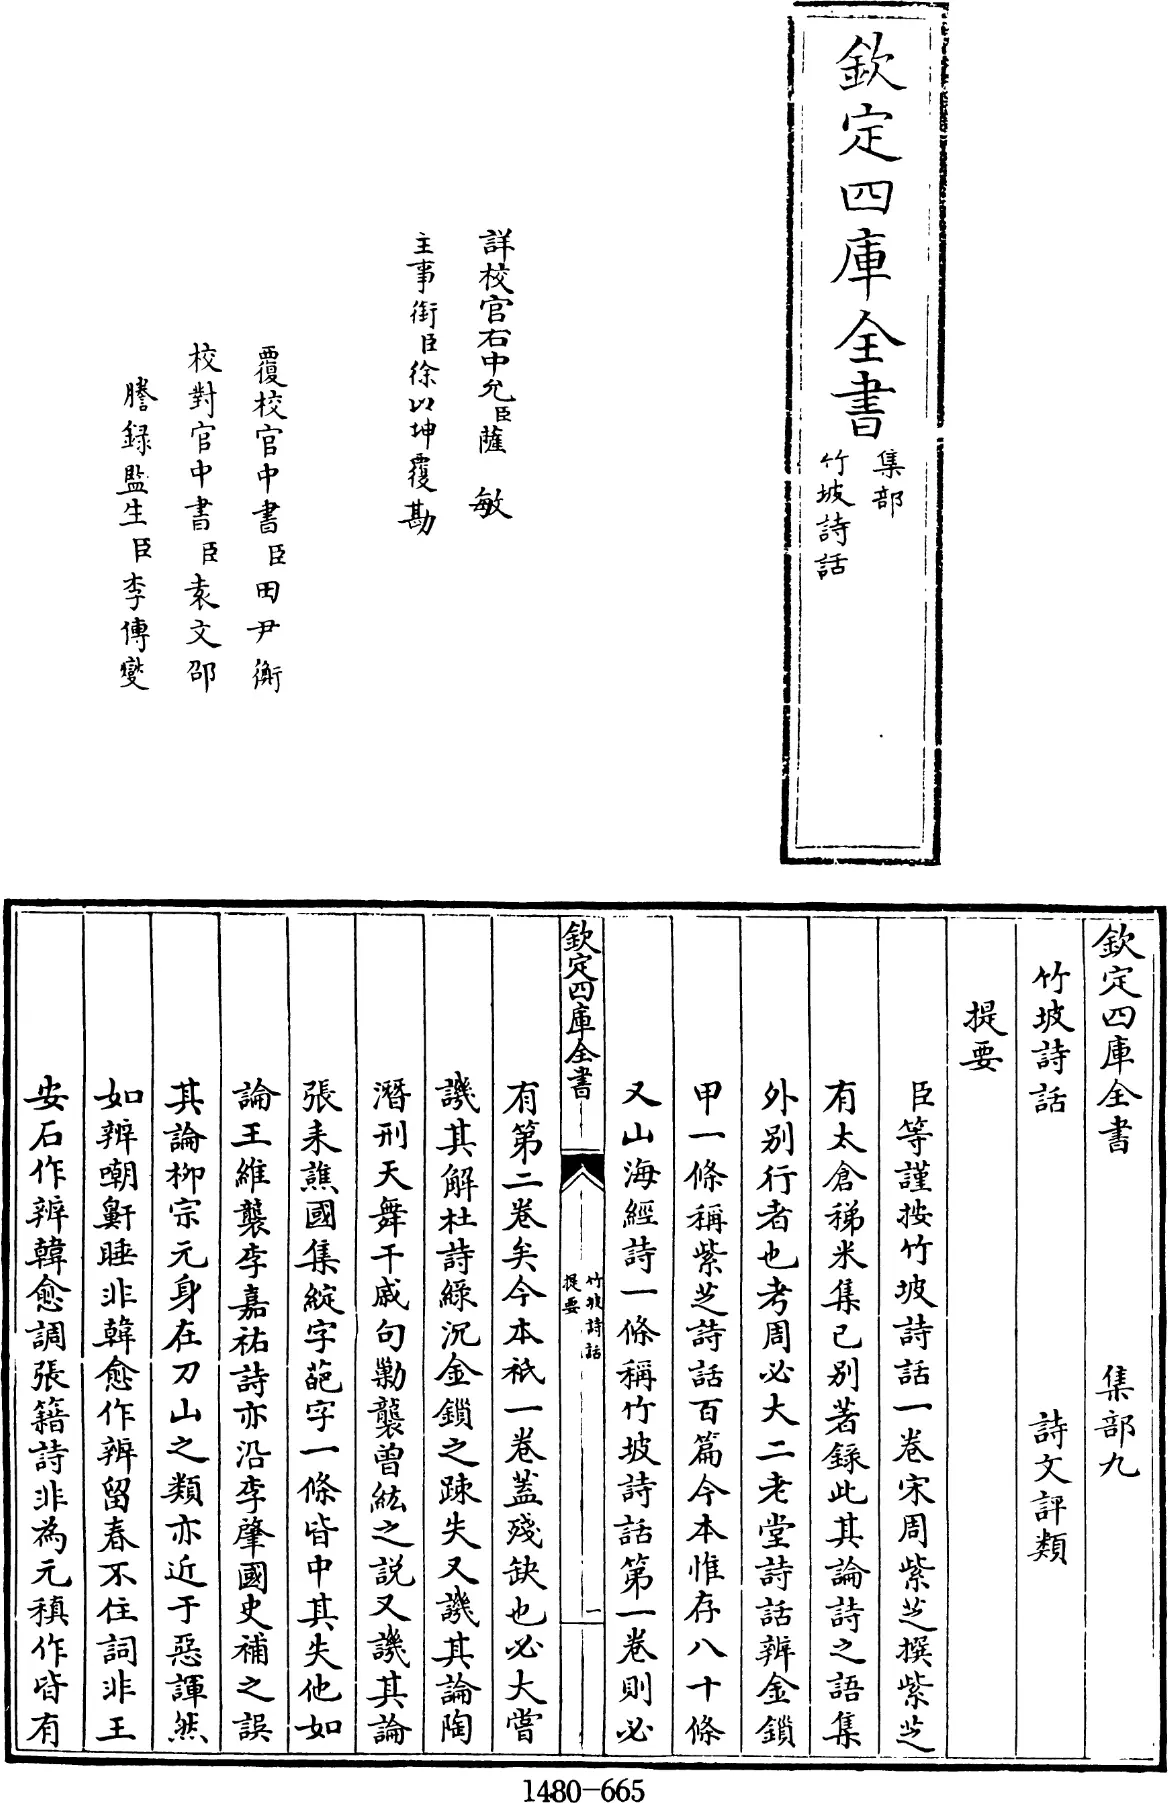 欽定四庫全書
集部
竹坡詩話
詳校官右中允臣薩敏
主事銜臣徐以坤覆勘
覆校官中書臣田尹衡
校對官中書臣袁文邵
謄録監生臣李傳燮
欽定四庫全書 集部九
竹坡詩話 詩文評類
提要
臣等謹按竹坡詩話一卷宋周紫芝撰紫芝
有太倉稊米集已別著錄此其論詩之語集
外别行者也考周必大二老堂詩話辨金鎖
甲一條稱紫芝詩話百篇今本惟存八十條
又山海經詩一條稱竹坡詩話第一卷則必
欽定四庫全書
竹坡詩話
提要
一
有第二卷矣今本祇一卷蓋殘缺也必大嘗
譏其解杜詩綠沉金鎖之疎失又譏其論陶
潛刑天舞干戚句勦襲曾紘之説又譏其論
張耒譙國集綻字葩字一條皆中其失他如
論王維襲李嘉祐詩亦沿李肇國史補之誤
其論栁宗元身在刀山之類亦近于惡諢然
如辨嘲鼾睡非韓愈作辨留春不住詞非王
安石作辨韓愈調張籍詩非為元稹作皆有
1480-665